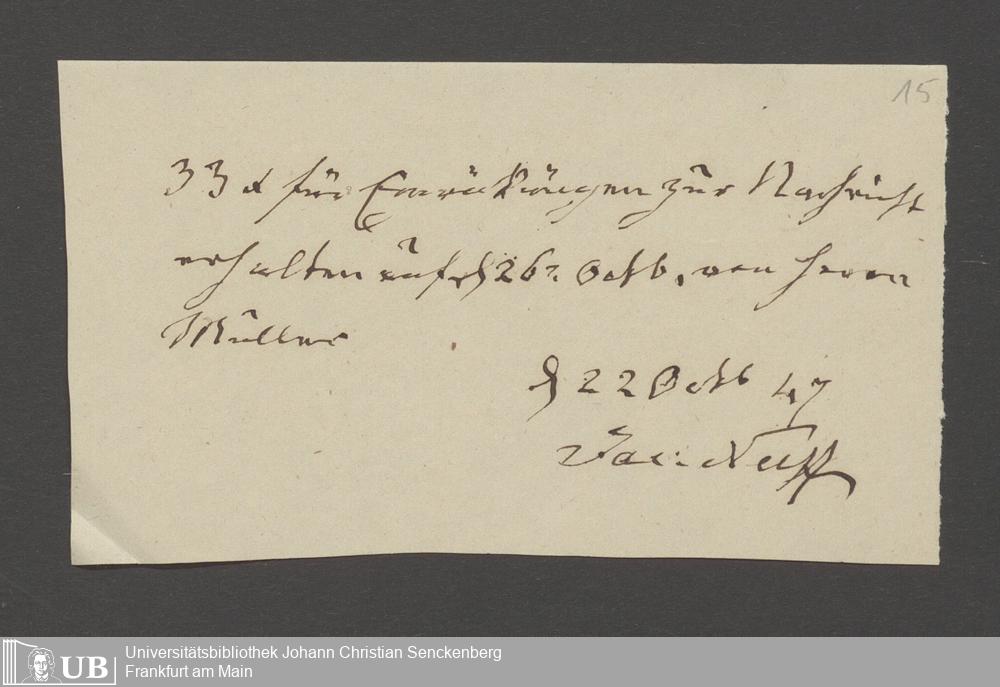 15
33 x für Einrückungen zur Nachricht
erhalten auf d 26t. Octb. von Herrn
Müller
d 22 Octb 47
Jac:
UB Universitätsbibliothek Johann Christian Senckenberg
Frankfurt am Main